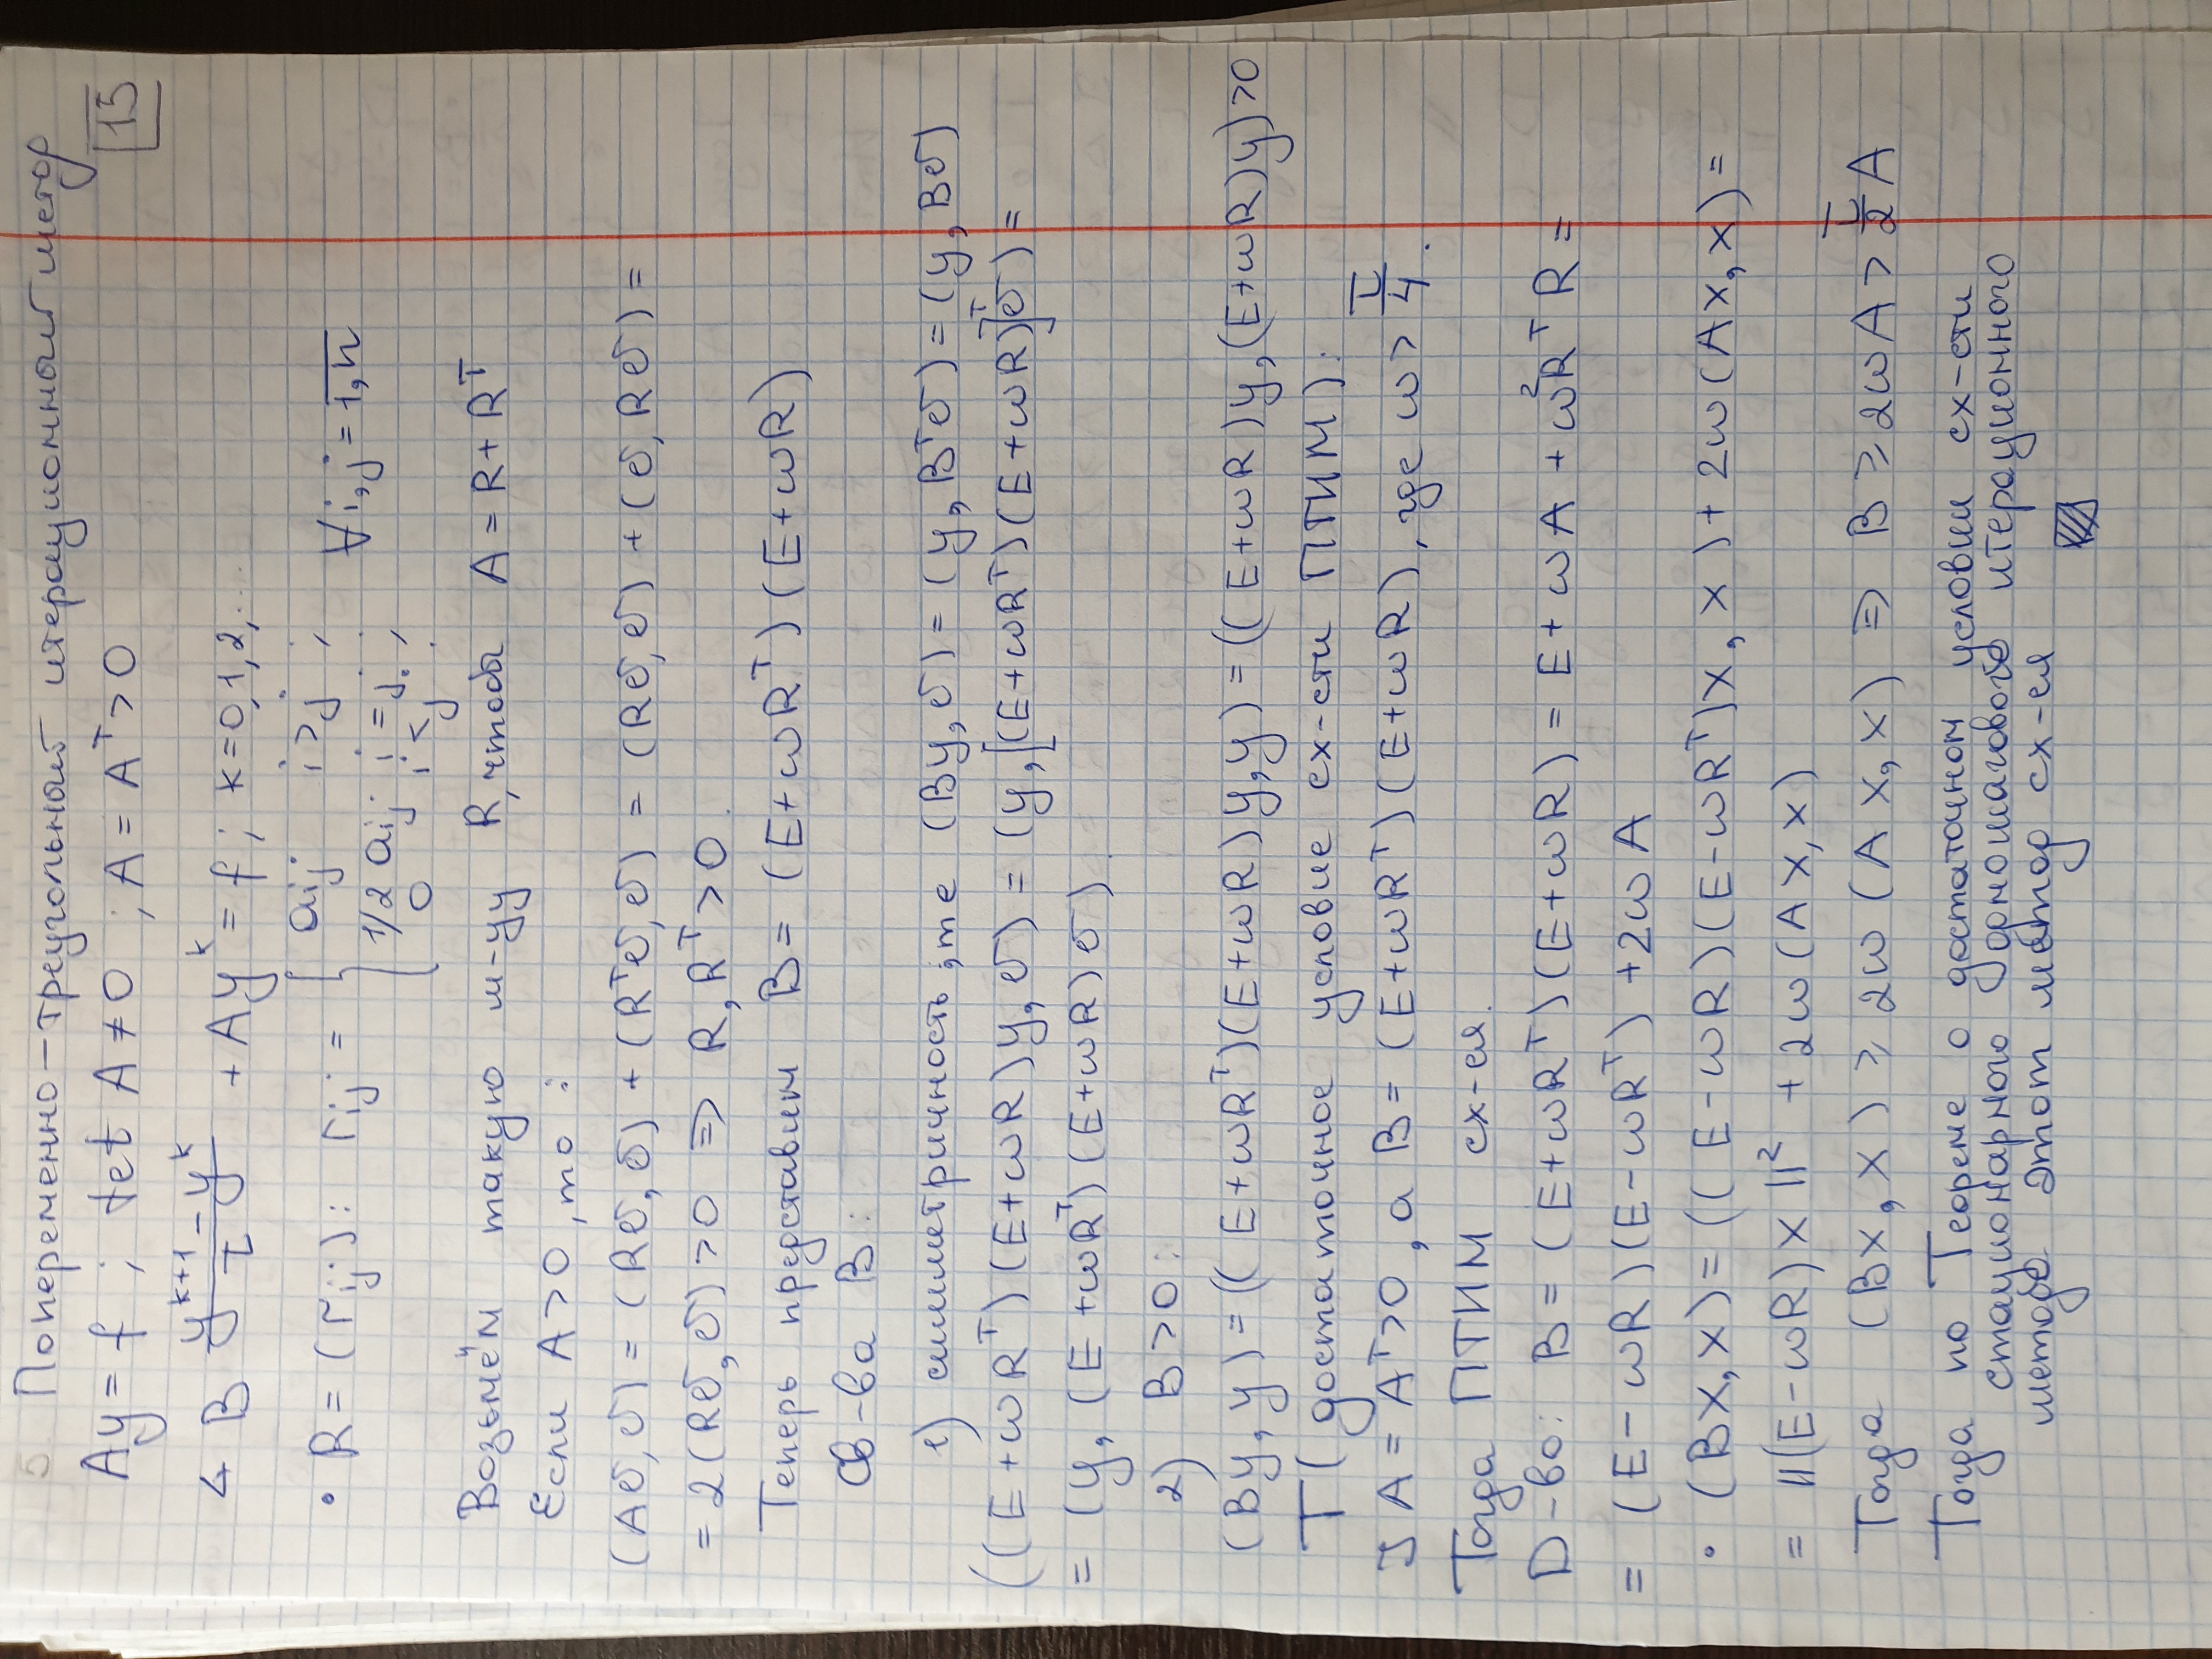 5. Попеременно-треугольный итерационный метод
15
Ay = f ; det A ≠ 0 ; A = Aᵀ > 0
4 B (y^{k+1} - y^k)/τ + Ay^k = f ; k = 0,1,2,...
• R = (r_ij): r_ij = { a_ij i > j ; 1/2 a_ij i = j ; 0 i < j ; ∀ i,j = \overline{1,n}
Возьмём такую м-цу R, чтобы A = R + Rᵀ
Если A > 0, то :
(Aυ, υ) = (Rυ, υ) + (Rᵀυ, υ) = (Rυ, υ) + (υ, Rυ) =
= 2(Rυ, υ) > 0 ⇒ R, Rᵀ > 0.
Теперь представим B = (E + ωRᵀ)(E + ωR)
Св-ва B:
1) симметричность, те (By, υ) = (y, Bᵀυ) = (y, Bυ)
((E + ωRᵀ)(E + ωR)y, υ) = (y, [(E + ωRᵀ)(E + ωR)]ᵀυ) =
= (y, (E + ωRᵀ)(E + ωR)υ).
2) B > 0:
(By, y) = ((E + ωRᵀ)(E + ωR)y, y) = ((E + ωR)y, (E + ωR)y) > 0
Т (достаточное условие сх-сти ПТИМ):
] A = Aᵀ > 0, а B = (E + ωRᵀ)(E + ωR), где ω > τ/4.
Тогда ПТИМ сх-ся.
D-во: B = (E + ωRᵀ)(E + ωR) = E + ωA + ω²RᵀR =
= (E - ωR)(E - ωRᵀ) + 2ωA
• (Bx, x) = ((E - ωR)(E - ωRᵀ)x, x) + 2ω(Ax, x) =
= ||(E - ωR)x||² + 2ω(Ax, x)
Тогда (Bx, x) ⩾ 2ω(Ax, x) ⇒ B ⩾ 2ωA > τ/2 A
Тогда по Теореме о достаточном условии сх-сти
стационарного одношагового итерационного
метода этот метод сх-ся